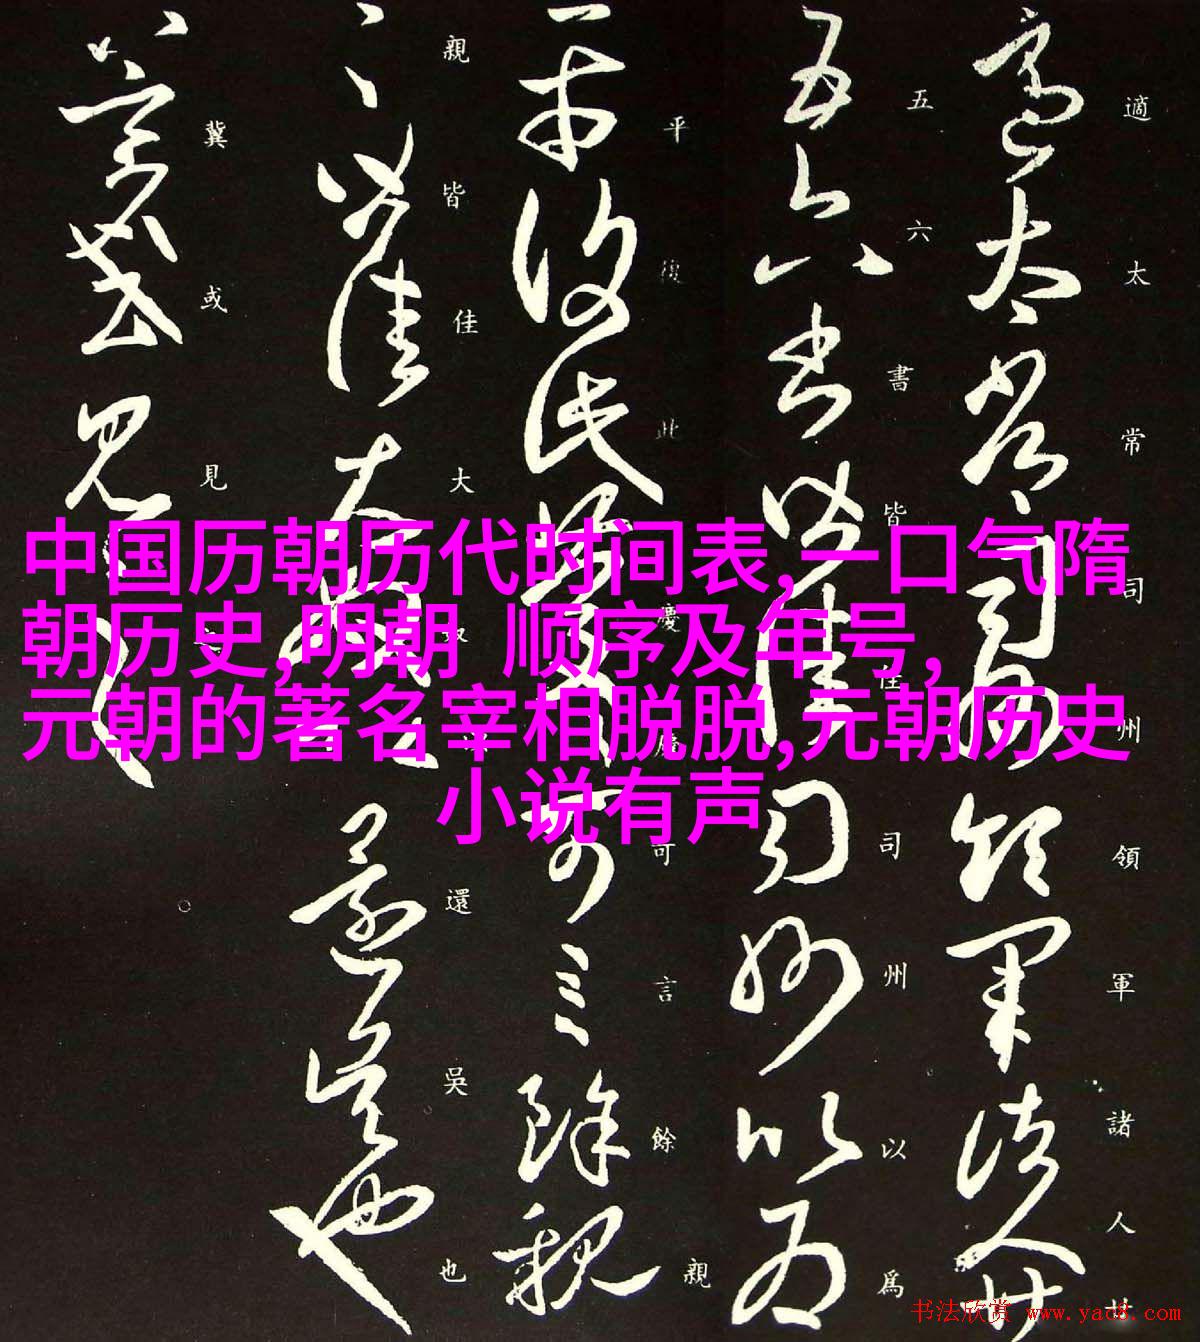 中国历朝历代时间表,一口气隋
朝历史,明朝 顺序及年号,
元朝的著名宰相脱脱,元朝历史
小说有声
適太常司州領軍諸人廿
五六書皆佳司州以為
平復此慶可言餘親
親皆佳大奴還吳也
冀或見之
书法欣赏 www.yac8.com